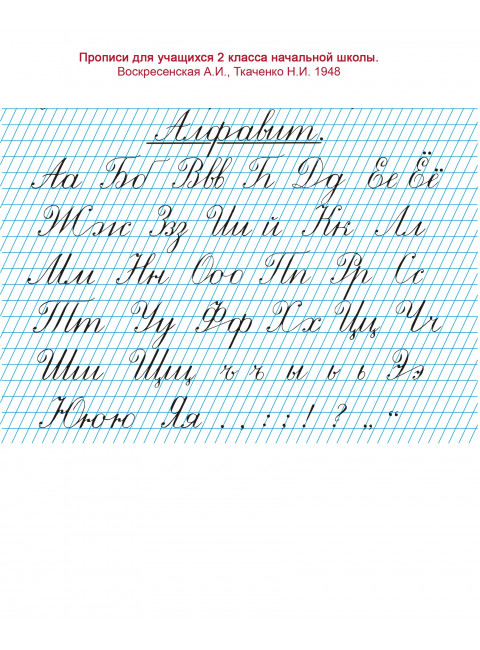 Прописи для учащихся 2 класса начальной школы.
Воскресенская А.И., Ткаченко Н.И. 1948
Алфавит.
Аа Бб Ввв Гг Дд Ее Ёё
Жж Ззз Ии й Кк Лл
Мм Нн Ооо Пп Рр Сс
Тт Уу Фф Хх Цц Чч
Шш Щщ ъ ъ ы ь ь Ээ
Ююю Яя . , : ; ! ? „ “